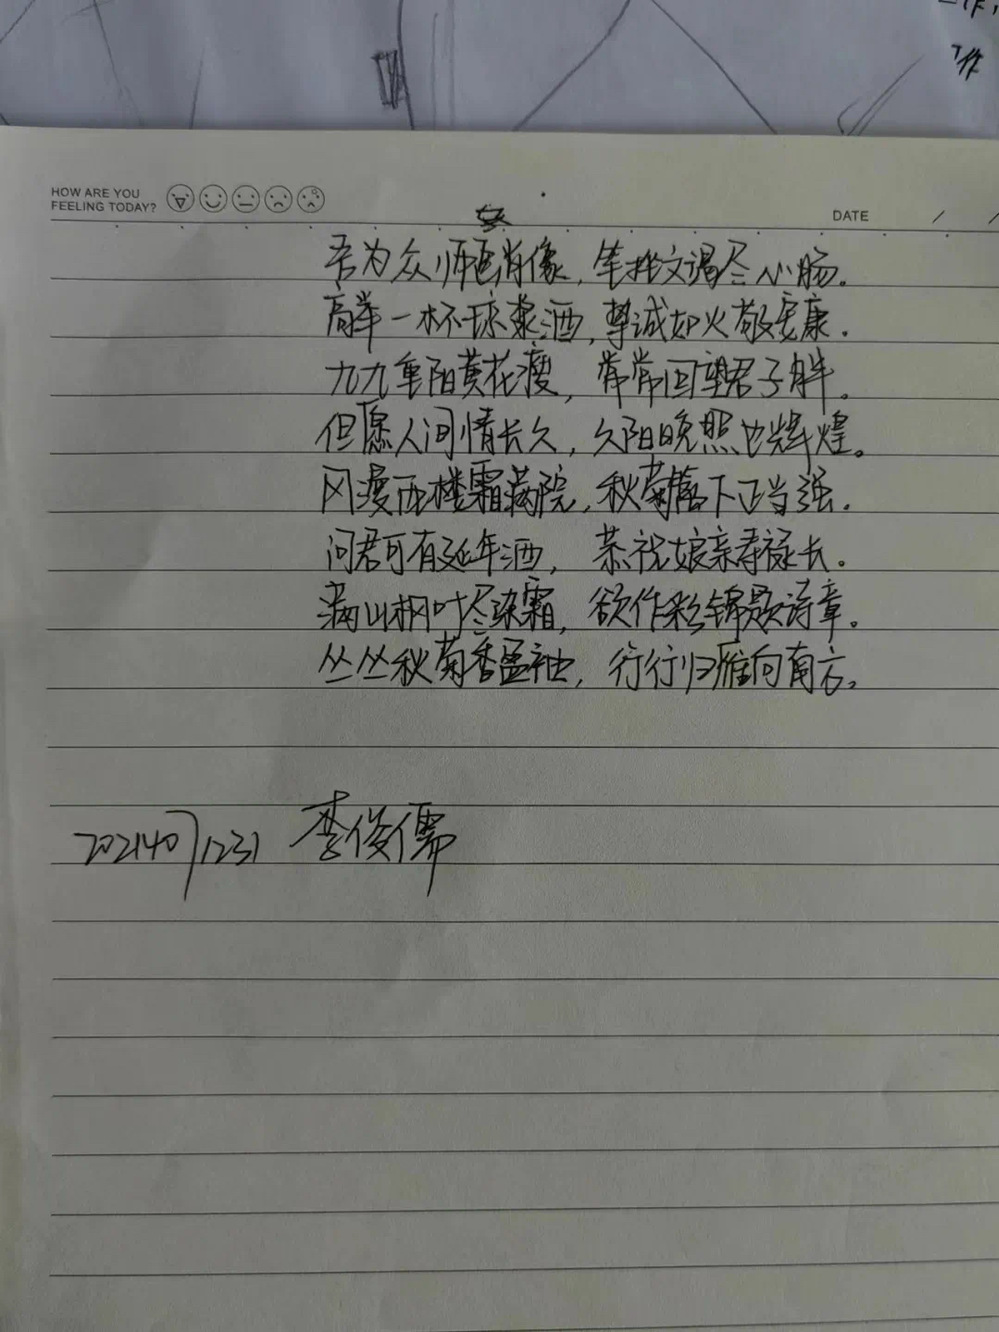 作，
作
HOW ARE YOU
FEELING TODAY?
DATE / /
吾为众师画肖像，笔拙文竭尽心肠。
高举一杯琼浆酒，挚诚如火敬安康。
九九重阳黄花瘦，常常回望君子胖。
但愿人间情长久，夕阳晚照也辉煌。
风漫西楼霜满院，秋菊篱下正当强。
问君可有延年酒，恭祝娘亲寿禄长。
满山枫叶尽染霜，欲作彩锦题诗章。
丛丛秋菊香盈袖，行行归雁向南方。
202140711231 李俊儒